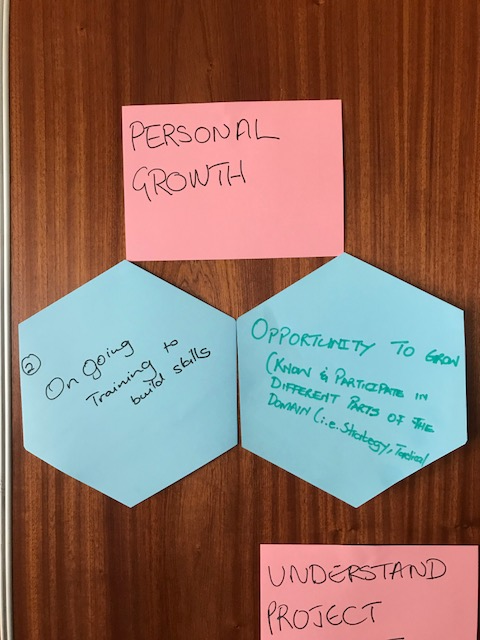 PERSONAL
GROWTH
②
On going
Training to
build skills
OPPORTUNITY TO GROW
(KNOW & PARTICIPATE IN
DIFFERENT PARTS OF THE
DOMAIN (i.e. Strategy, Tactical
UNDERSTAND
PROJECT